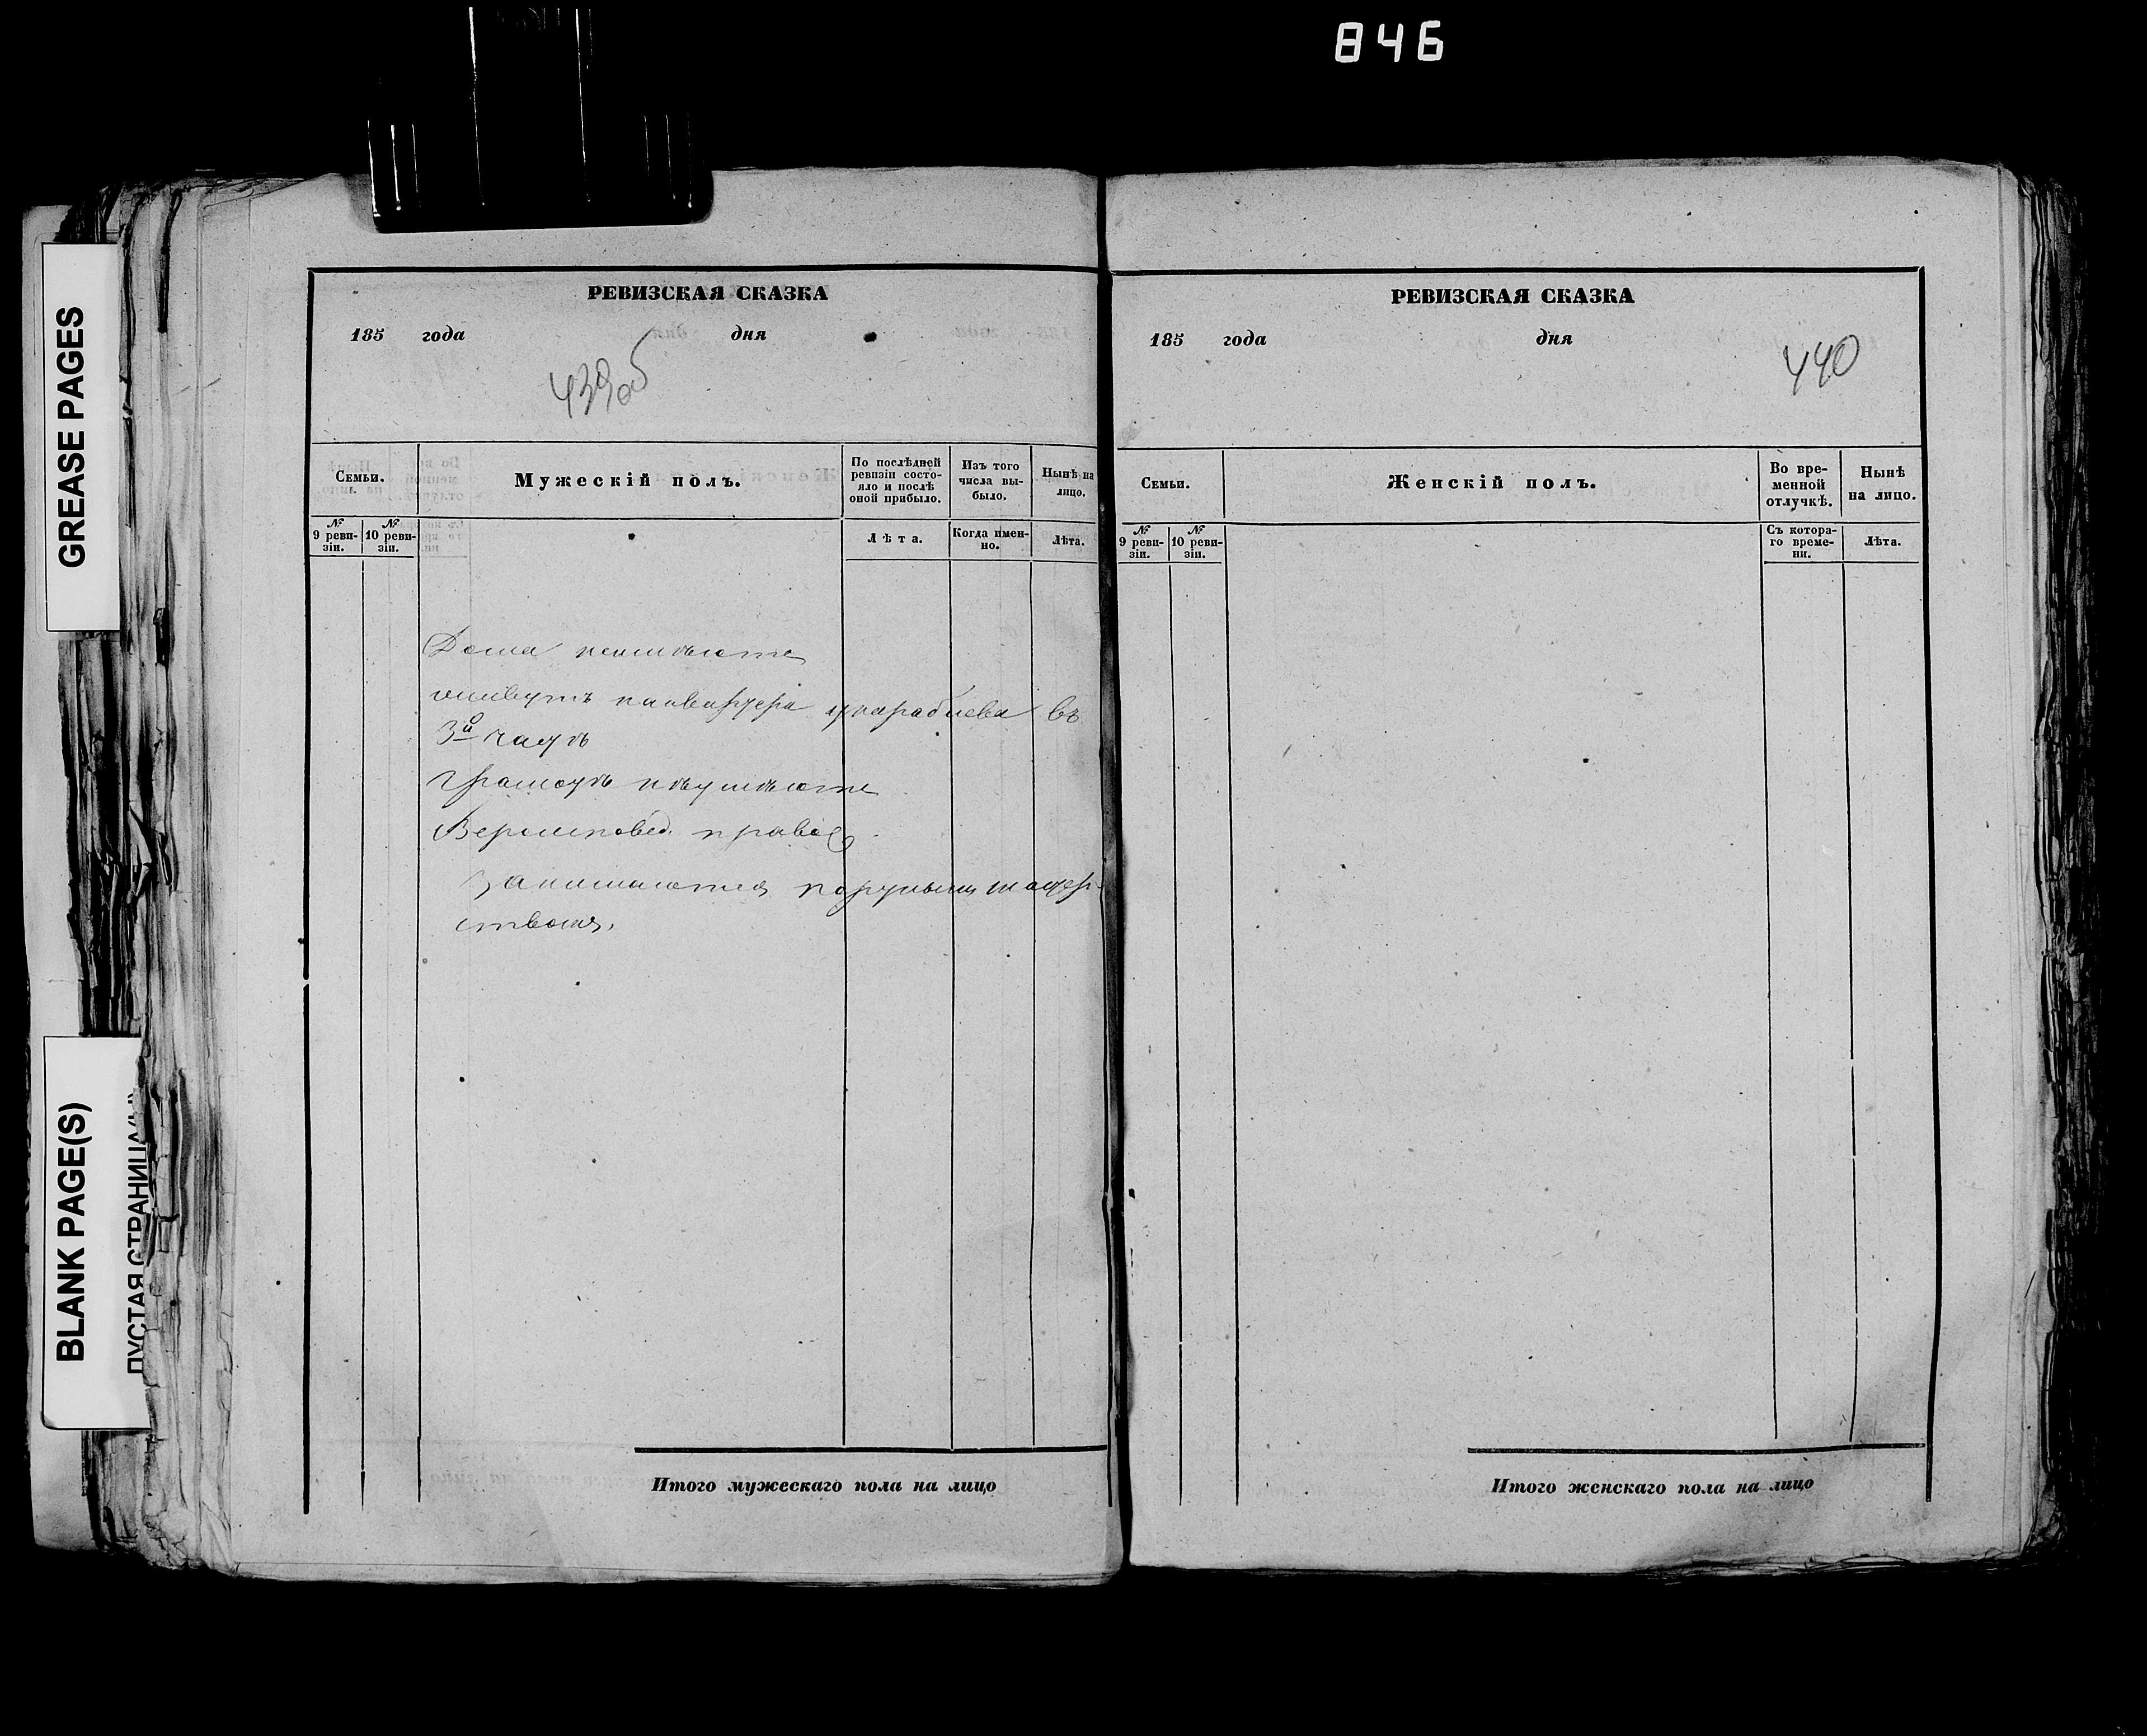 846
GREASE PAGES
BLANK PAGE(S)
ПУСТАЯ СТРАНИЦА
РЕВИЗСКАЯ СКАЗКА
185 года дня
439об
Семьи.
Мужескій полъ.
По послѣдней
ревизіи состо-
яло и послѣ
оной прибыло.
Изъ того
числа вы-
было.
Нынѣ на
лицо.
№
9 реви-
зіи.
№
10 реви-
зіи.
Лѣта.
Когда имен-
но.
Лѣта.
Дома неимѣютъ
живутъ наквартере въ
3й частѣ
Грамотѣ нѣумѣютъ
Вероисповед. правос
Занимаются портнымъ мастер-
ствомъ.
Итого мужескаго пола на лицо
РЕВИЗСКАЯ СКАЗКА
185 года дня
440
Семьи.
Женскій полъ.
Во вре-
менной
отлучкѣ.
Нынѣ
на лицо.
№
9 реви-
зіи.
№
10 реви-
зіи.
Съ котора-
го време-
ни.
Лѣта.
Итого женскаго пола на лицо